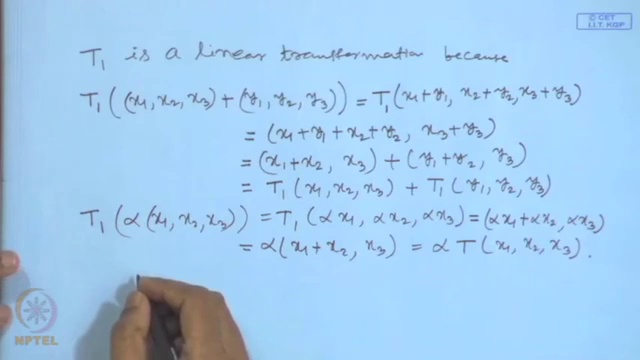 © CET
I.I.T. KGP
T₁ is a linear transformation because
T₁((x₁, x₂, x₃) + (y₁, y₂, y₃)) = T₁(x₁+y₁, x₂+y₂, x₃+y₃)
= (x₁+y₁+x₂+y₂, x₃+y₃)
= (x₁+x₂, x₃) + (y₁+y₂, y₃)
= T₁(x₁, x₂, x₃) + T₁(y₁, y₂, y₃)
T₁(α(x₁, x₂, x₃)) = T₁(αx₁, αx₂, αx₃) = (αx₁+αx₂, αx₃)
= α(x₁+x₂, x₃) = αT(x₁, x₂, x₃).
NPTEL